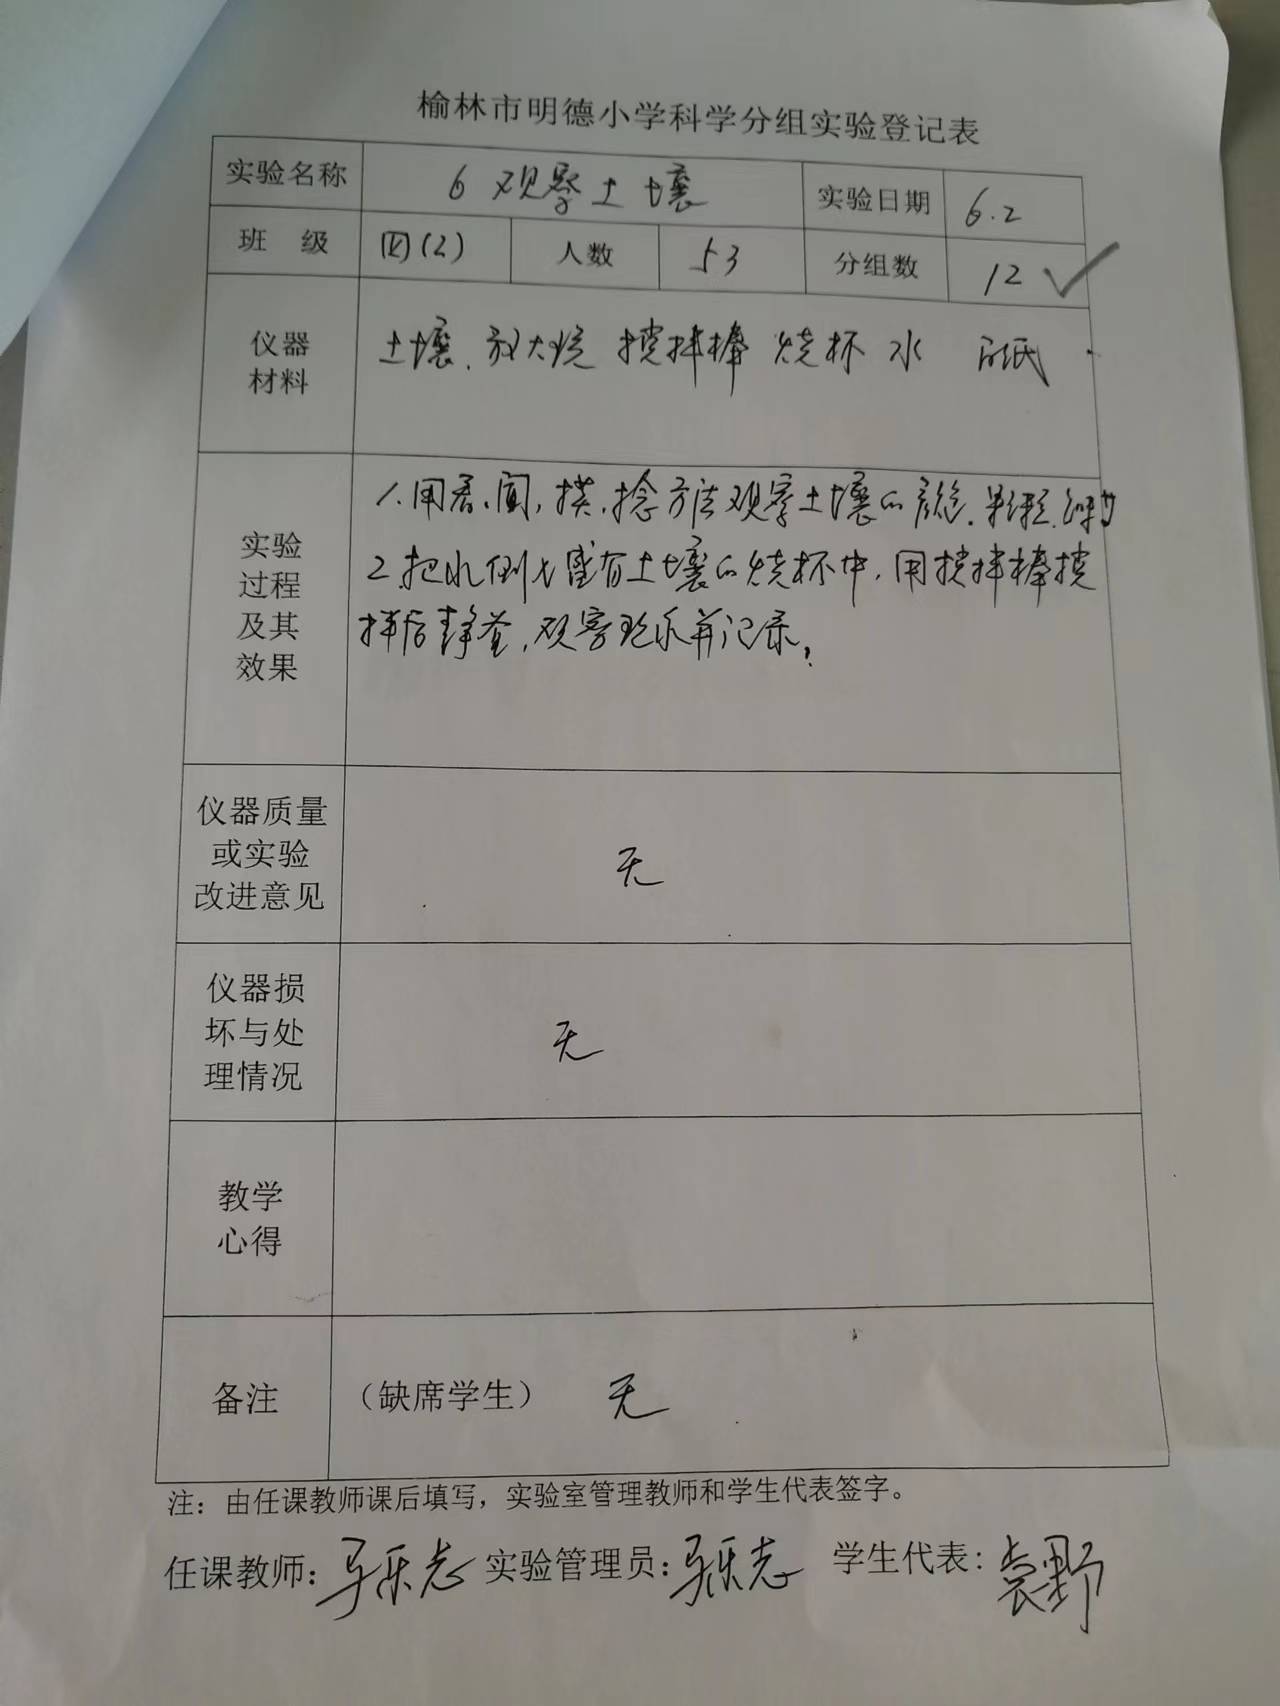 榆林市明德小学科学分组实验登记表
实验名称 6 观察土壤 实验日期 6.2
班 级 四(2) 人数 53 分组数 12 ✓
仪器材料 土壤、放大镜 搅拌棒 烧杯 水 白纸
实验过程及其效果 1.用看、闻,摸,捻方法观察土壤的颜色、颗粒、
2.把水倒入盛有土壤的烧杯中,用搅拌棒搅
拌后静置,观察现象并记录。
仪器质量或实验改进意见 无
仪器损坏与处理情况 无
教学心得
备注 (缺席学生) 无
注:由任课教师课后填写,实验室管理教师和学生代表签字。
任课教师: 马乐志 实验管理员: 马乐志 学生代表: 袁野